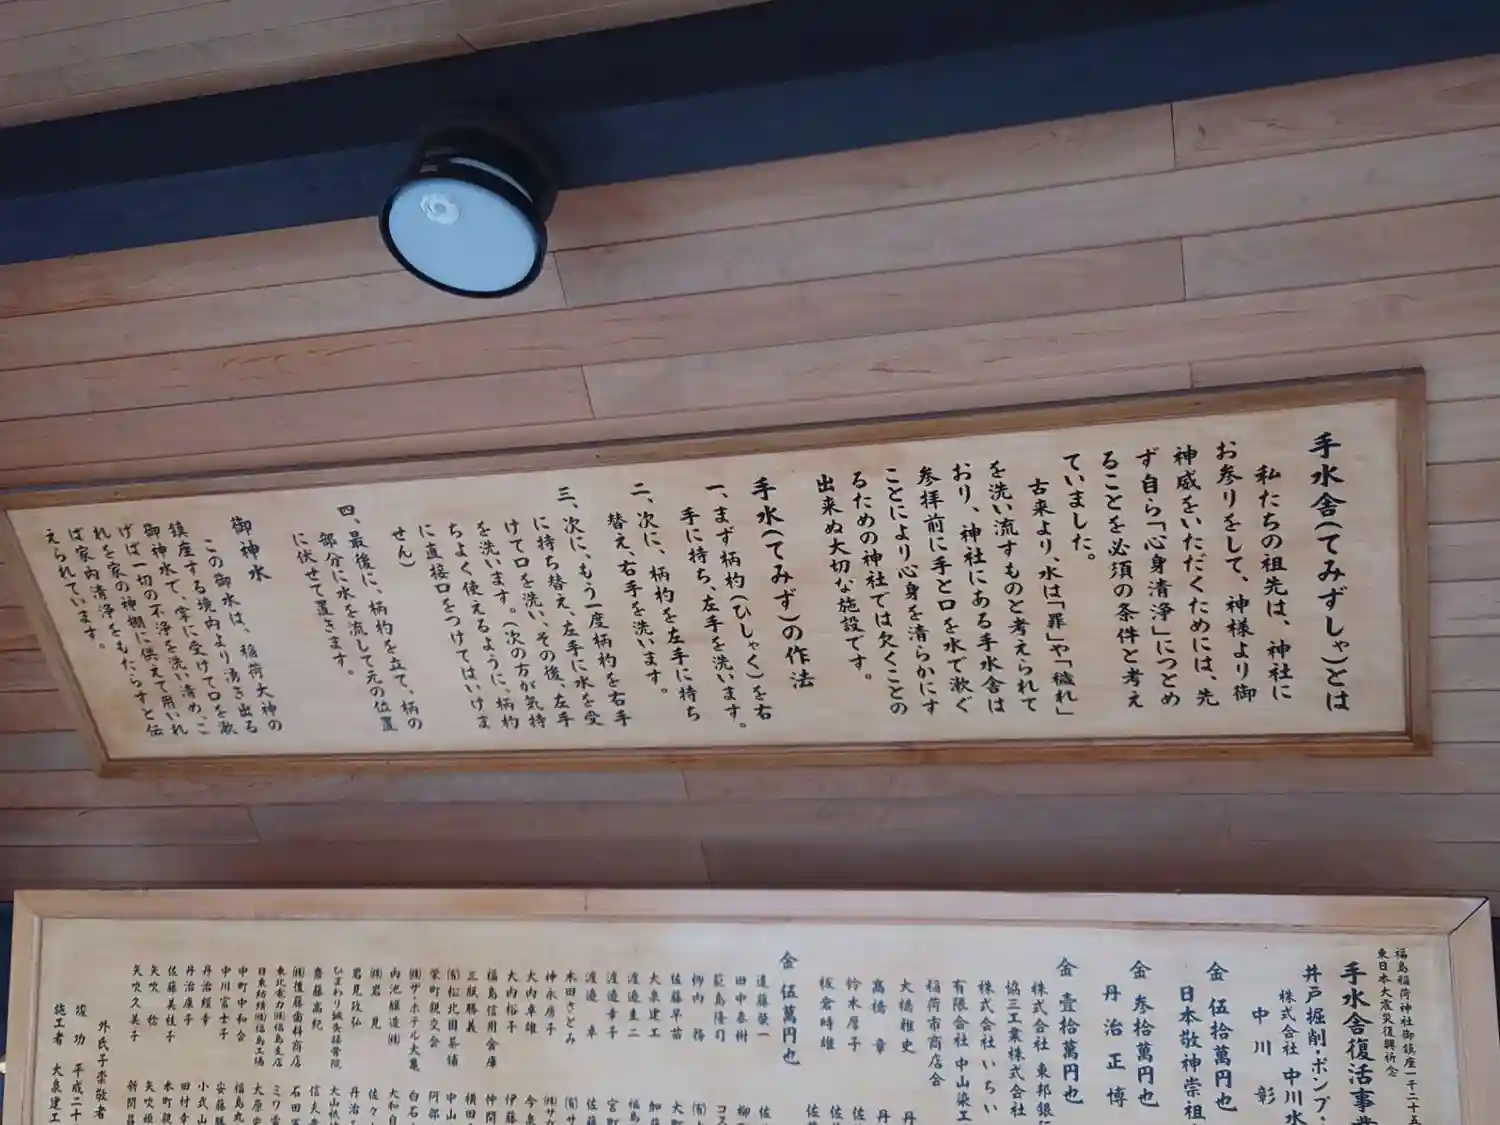 手水舎(てみずしゃ)とは
私たちの祖先は、神社に
お参りをして、神様より御
神威をいただくためには、先
ず自ら「心身清浄」につとめ
ることを必須の条件と考え
ていました。
古来より、水は「罪」や「穢れ」
を洗い流すものと考えられて
おり、神社にある手水舎は
参拝前に手と口を水で漱ぐ
ことにより心身を清らかにす
るための神社では欠くことの
出来ぬ大切な施設です。
手水(てみず)の作法
一、まず柄杓(ひしゃく)を右
手に持ち、左手を洗います。
二、次に、柄杓を左手に持ち
替え、右手を洗います。
三、次に、もう一度柄杓を右手
に持ち替え、左手に水を受
けて口を洗い、その後、左手
を洗います。(次の方が気持
ちよく使えるように、柄杓
に直接口をつけてはいけま
せん)
四、最後に、柄杓を立て、柄の
部分に水を流して元の位置
に伏せて置きます。
御神水
この御水は、稲荷大神の
鎮座する境内より湧き出る
御神水で、掌に受けて口を漱
げば一切の不浄を洗い清め、こ
れを家の神棚に供えて用いれ
ば家内清浄をもたらすと伝
えられています。
福島稲荷神社御鎮座一千二十五
東日本大震災復興祈念
手水舎復活事業
井戸掘削・ポンプ・
株式会社 中川水
中川 彰
金 伍拾萬円也
日本敬神崇祖
金 参拾萬円也
丹治正博
金 壹拾萬円也
株式会社 東邦銀行
協三工業株式会社
株式会社いちい
有限会社 中山染工
稲荷市商店会
大橋雅史
髙橋 章
鈴木厚子
板倉時雄
金 伍萬円也
遠藤榮一
田中泰樹
菰島隆司
柳内 務
佐藤早苗
大泉建工
渡邉圭二
渡邉幸子
渡邉 卓
木田さとみ
神永房子
大内卓雄
大内裕子
福島信用金庫
三瓶勝義
㈲松北園茶舗
栄町親交会
㈱ザ・ホテル大亀
内池醸造㈱
㈱岩 見
岩見政弘
ひまわり鍼灸接骨院
齋藤高紀
㈱後藤歯科商店
東北電力㈱福島支店
日東紡績㈱福島工場
中町中和会
中川富士子
丹治経幸
丹治康子
佐藤美枝子
矢吹 稔
矢吹久美子
外氏子崇敬者
竣功 平成二十
施工者 大泉建工